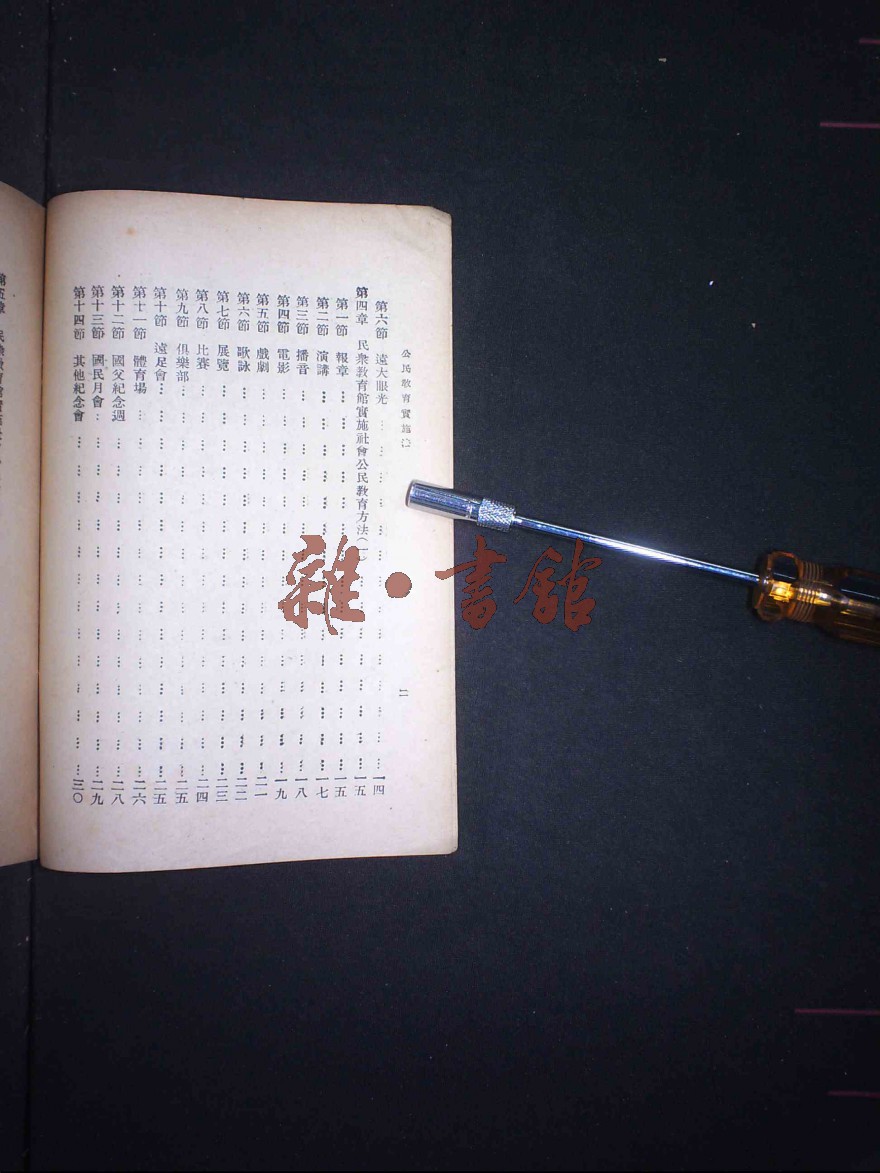 公民敎育實施法
二
第六節　遠大眼光………一四
第四章　民衆敎育館實施社會公民敎育方法(一)………一五
第一節　報章………一五
第二節　演講………一七
第三節　播音………一八
第四節　電影………一九
第五節　戲劇………二一
第六節　歌詠………二二
第七節　展覽………二三
第八節　比賽………二四
第九節　俱樂部………二五
第十節　遠足會………二五
第十一節　體育場………二六
第十二節　國父紀念週………二八
第十三節　國民月會………二九
第十四節　其他紀念會………三〇
第五章
雜·書館